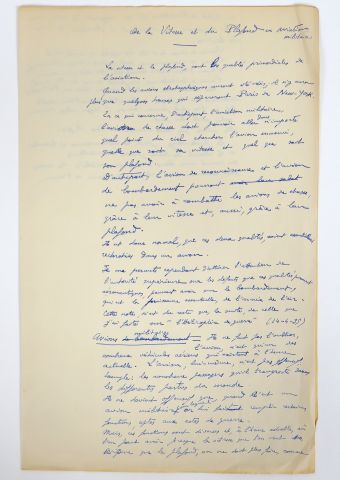 De la Vitesse et du Plafond en aviation
militaire
La vitesse et le plafond, sont les qualités primordiales de
l'aviation.
Quand les avions stratosphériques auront été créés, il n'y aura
plus que quelques heures qui sépareront Paris de New-York.
En ce qui concerne, d'autre part l'aviation militaire,
l'avion de chasse doit pouvoir aller dans n'importe
quel point du ciel chercher l'avion ennemi,
quelle que soit sa vitesse et quel que soit
son plafond.
D'autre part, l'avion de reconnaissance et l'avion
de bombardement pourront
ne pas avoir à combattre les avions de chasse
grâce à leur vitesse et, aussi, grâce à leur
plafond.
Il est donc normal, que ces deux qualités, soient
recherchées dans un avion.
Je me permets cependant d'attirer l'attention de
l'autorité supérieure sur les défauts que ces qualités
peuvent avoir sur le bombardement,
qui est la puissance essentielle, de l'armée de l'air.
Cette note, n'est du reste que la suite de celle que
j'ai faite sur "l'Hétérogène de guerre" (14-4-35)
Avions militaires = Il ne faut pas l'oublier,
l'avion, n'est qu'un des
nombreux véhicules aériens qui existent à l'heure
actuelle. L'avion, lui-même, n'est pas
les nombreux passagers qu'il transporte dans
les différentes parties du monde
Il ne devient que, quand il est un
avion militaire et doit remplir certaines
fonctions, aptes aux actes de guerre.
Mais, ces fonctions sont diverses et, à l'heure actuelle, où
l'on peut avoir presque la vitesse que l'on veut
de même que le plafond, on ne doit plus faire, comme